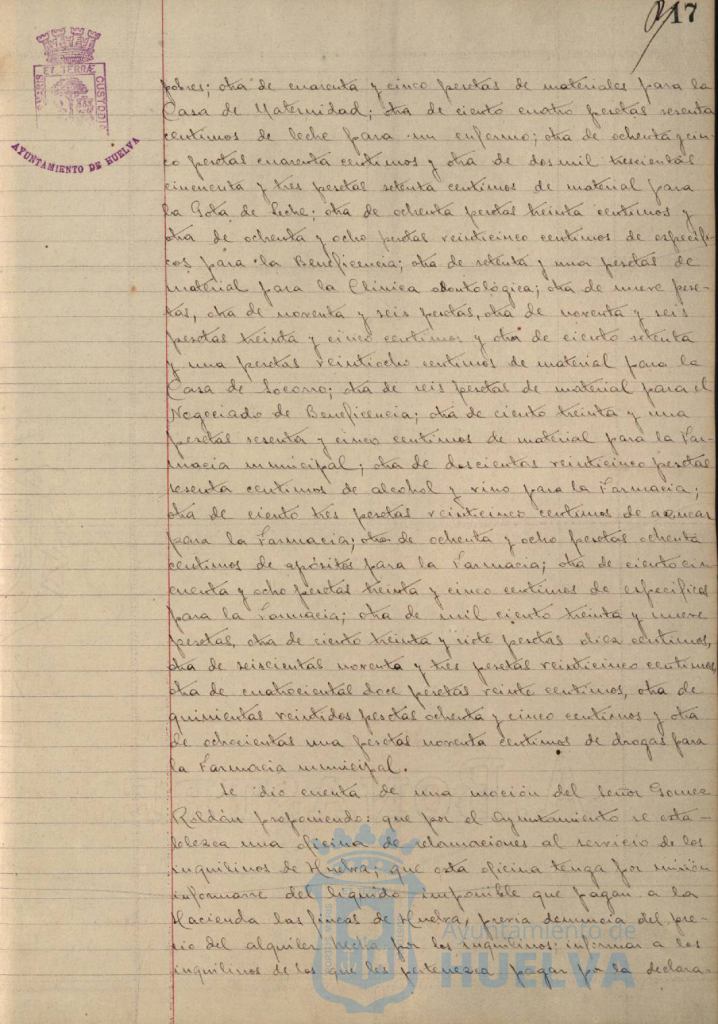 17
ET TERRÆ
CUSTODIA
AYUNTAMIENTO DE HUELVA
pobres; otra de cuarenta y cinco pesetas de materiales para la
Casa de Maternidad; otra de ciento cuatro pesetas sesenta
centimos de leche para un enfermo; otra de ochenta y cin-
co pesetas cuarenta centimos y otra de dos mil trescientas
cincuenta y tres pesetas setenta centimos de material para
la Gota de Leche; otra de ochenta pesetas treinta centimos y
otra de ochenta y ocho pesetas veinticinco centimos de especifi-
cos para la Beneficencia; otra de setenta y una pesetas de
material para la Clinica odontológica; otra de nueve pese-
tas, otra de noventa y seis pesetas, otra de noventa y seis
pesetas treinta y cinco centimos y otra de ciento setenta
y una pesetas veintiocho centimos de material para la
Casa de Socorro; otra de seis pesetas de material para el
Negociado de Beneficencia; otra de ciento treinta y una
pesetas sesenta y cinco centimos de material para la Far-
macia municipal; otra de doscientas veinticinco pesetas
sesenta centimos de alcohol y vino para la Farmacia;
otra de ciento tres pesetas veinticinco centimos de azucar
para la Farmacia; otra de ochenta y ocho pesetas ochenta
centimos de apósitos para la Farmacia; otra de ciento cin-
cuenta y ocho pesetas treinta y cinco centimos de especificos
para la Farmacia; otra de mil ciento treinta y nueve
pesetas, otra de ciento treinta y siete pesetas diez centimos,
otra de seiscientas noventa y tres pesetas veinticinco centimos
otra de cuatrocientas doce pesetas veinte centimos, otra de
quinientas veintidos pesetas ochenta y cinco centimos y otra
de ochocientas una pesetas noventa centimos de drogas para
la Farmacia municipal.
Se dio cuenta de una moción del Señor Gomez
Roldán proponiendo: que por el Ayuntamiento se esta-
blezca una oficina de reclamaciones al servicio de los
inquilinos de Huelva; que esta oficina tenga por misión
informarse del liquido imponible que pagan a la
Hacienda las fincas de Huelva, previa denuncia del pre-
cio del alquiler hecha por los inquilinos; informar a los
inquilinos de los que les pertenezca pagar por la declara-
Ayuntamiento de
HUELVA